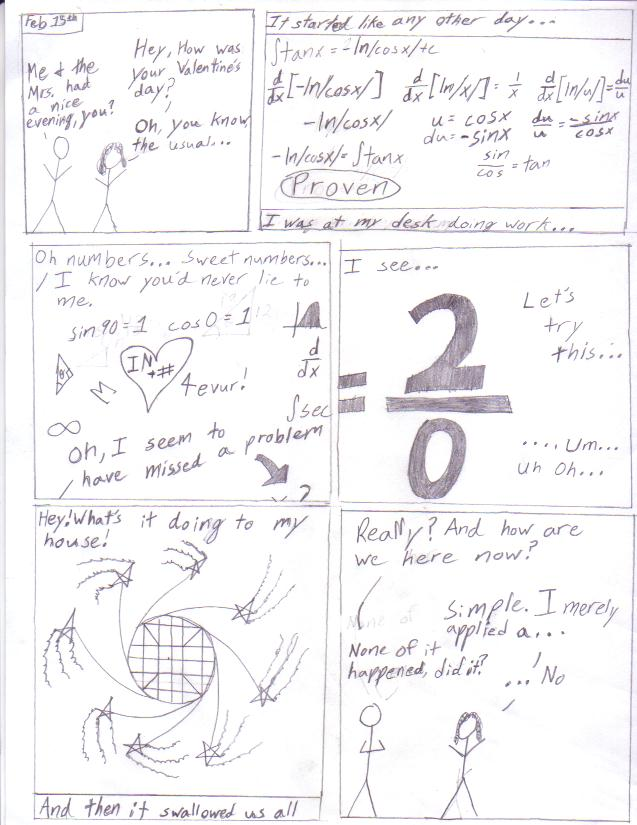 Feb 15th
Hey, How was
your Valentine's
day?
Me & the
Mrs. had
a nice
evening, you?
Oh, you know,
the usual...
It started like any other day...
∫tanx = -ln/cosx/+c
d/dx[-ln/cosx/] d/dx[ln/x/] = 1/x d/dx[ln/u/] = du/u
-ln/cosx/ u = cosx du/u = -sinx/cosx
du = -sinx
-ln/cosx/ = ∫tanx sin/cos = tan
Proven
I was at my desk doing work...
Oh numbers... Sweet numbers...
I know you'd never lie to
me.
sin 90 = 1 cos 0 = 1
d/dx
IN
+#
4evur!
∫sec
∞
Oh, I seem to
have missed a problem
I see...
Let's
try
this...
= 2/0
.... Um...
uh Oh...
Hey! What's it doing to my
house!
And then it swallowed us all
Really? And how are
we here now?
Simple. I merely
applied a...
None of
None of it
happened, did it?
... No